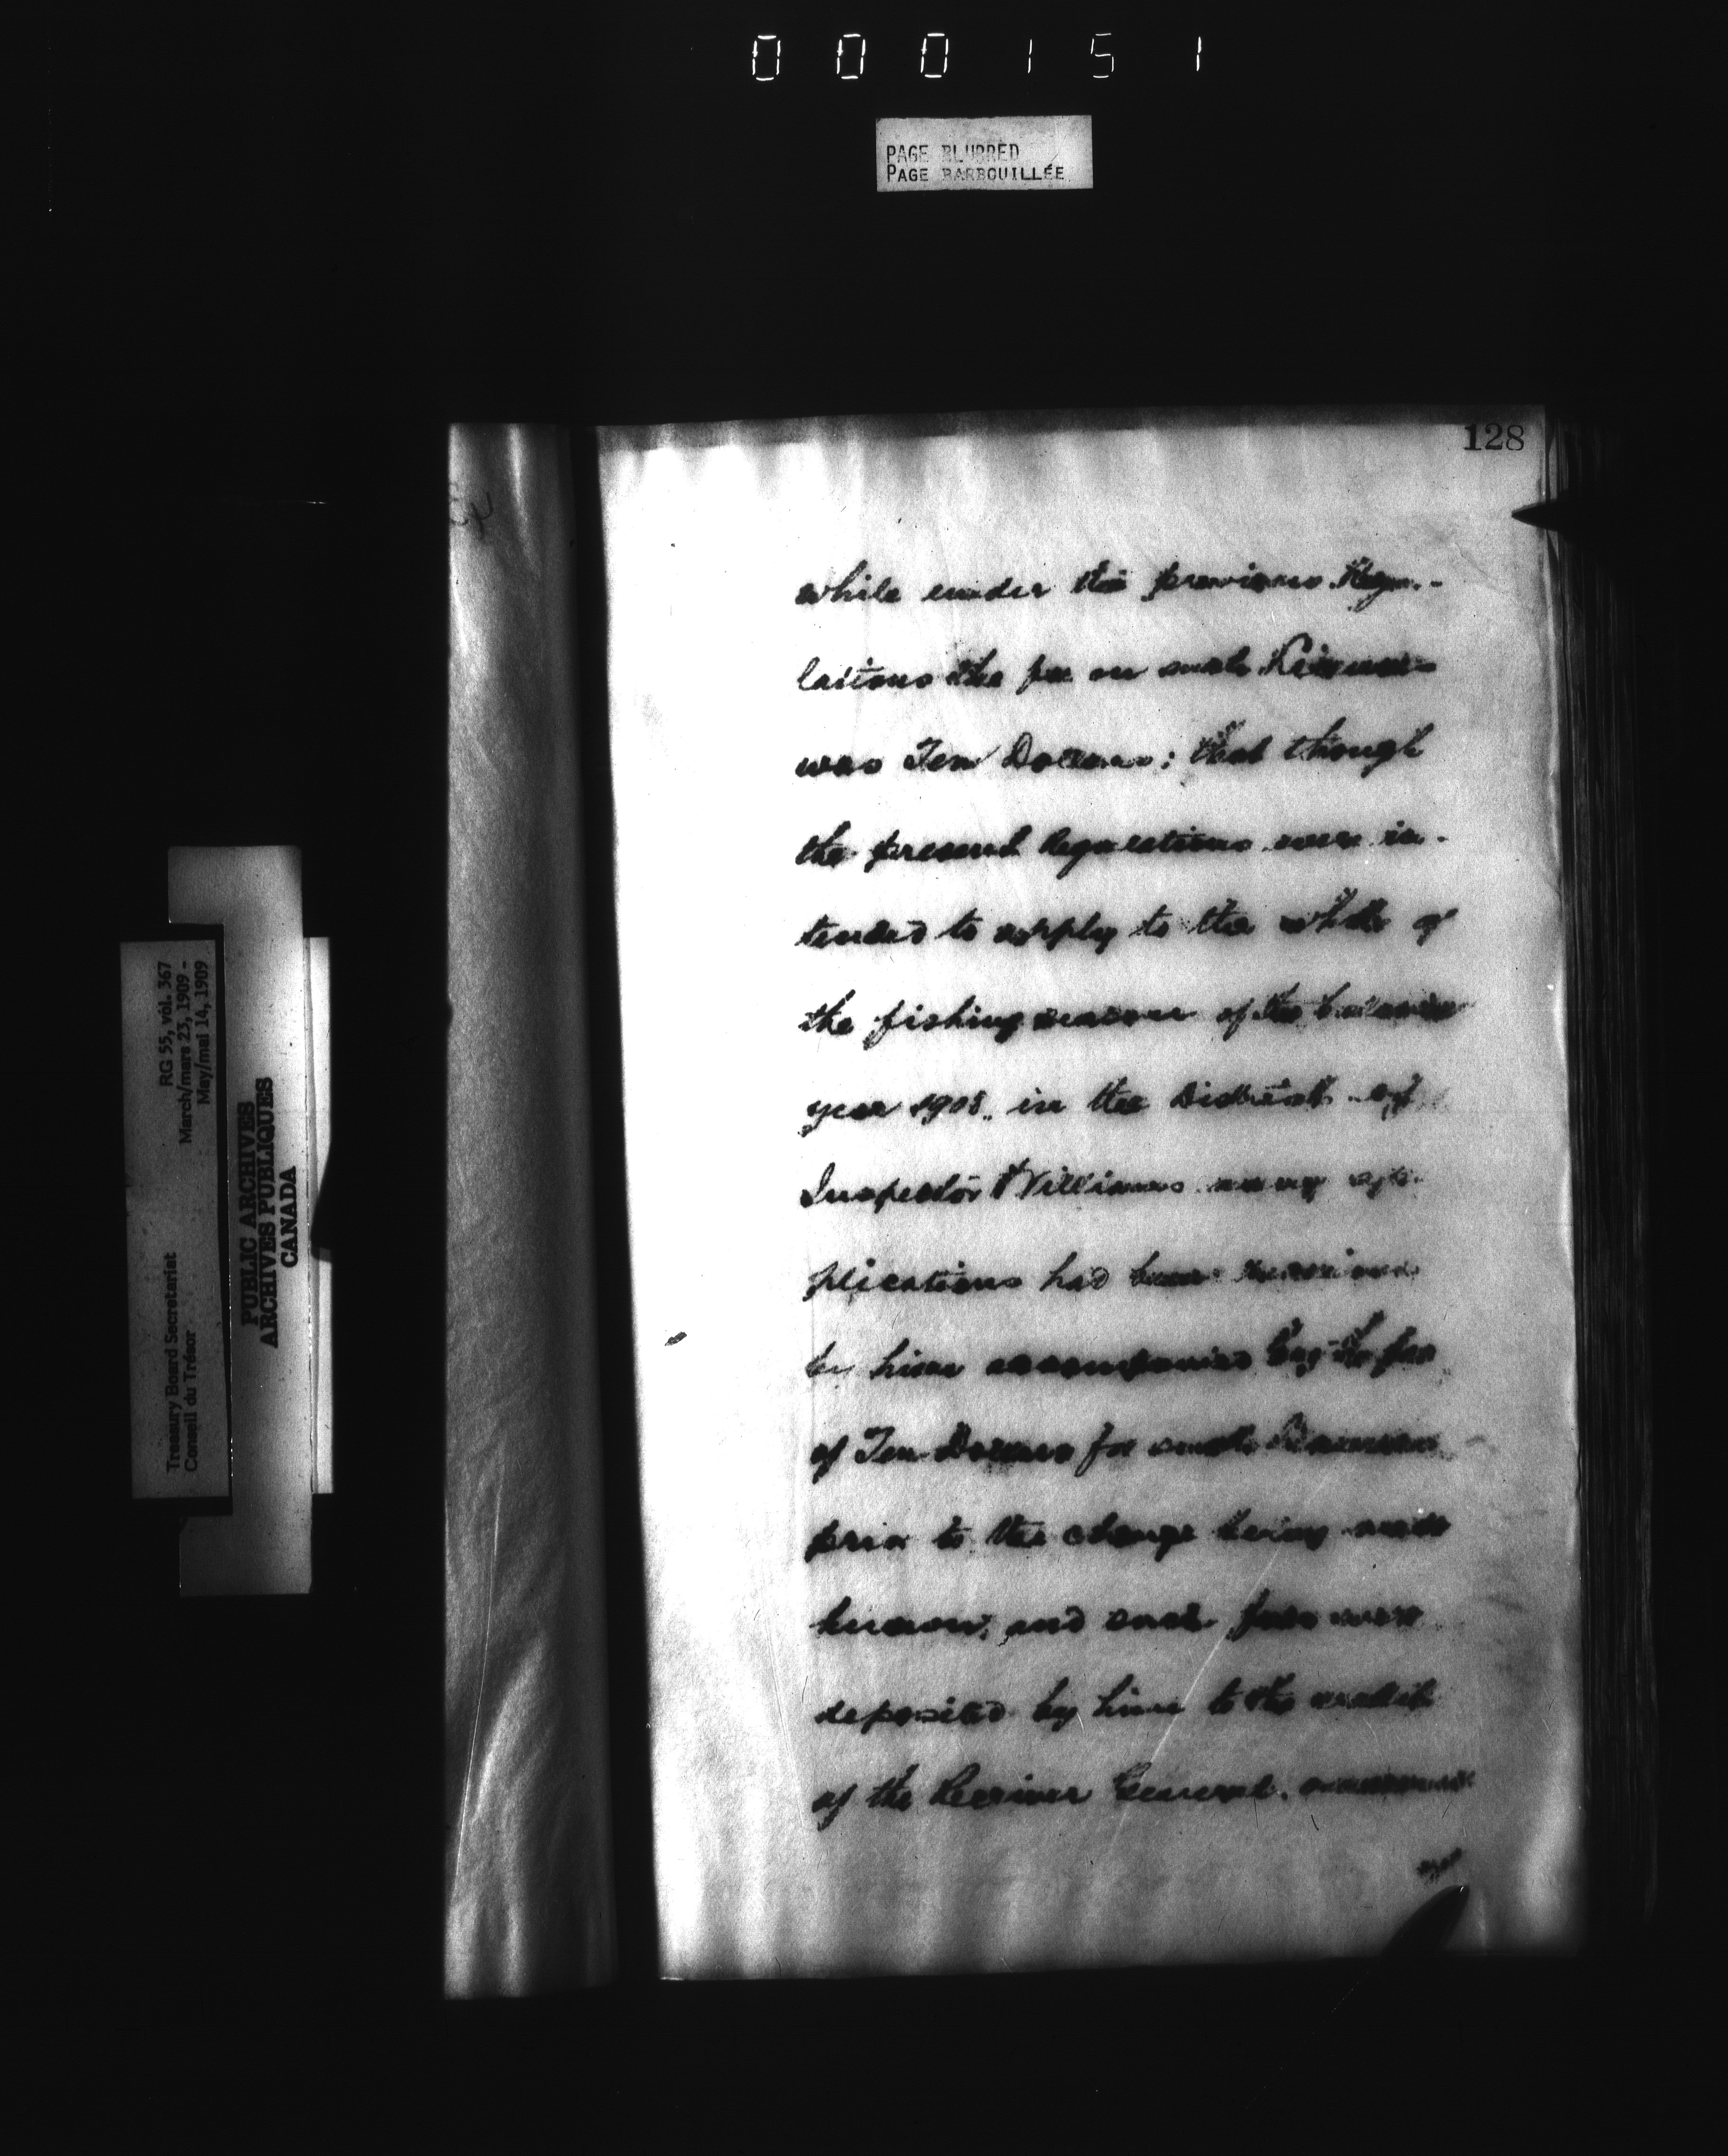 000151
PAGE BLURRED
PAGE BARBOUILLÉE
128
while under the previous Regu-
lations the fee on such Licenses
was Ten Dollars; that though
the present Regulations were in-
tended to apply to the whole of
the fishing season of the calendar
year 1908, in the District of
Inspector Williams many ap-
plications had been received
by him accompanied by the fee
of Ten Dollars for such Licenses
prior to the change being made
known; and such fees were
deposited by him to the credit
of the Receiver General.
RG 55, vol. 367
March/mars 23, 1909 -
May/mai 14, 1909
Treasury Board Secretariat
Conseil du Trésor
PUBLIC ARCHIVES
ARCHIVES PUBLIQUES
CANADA